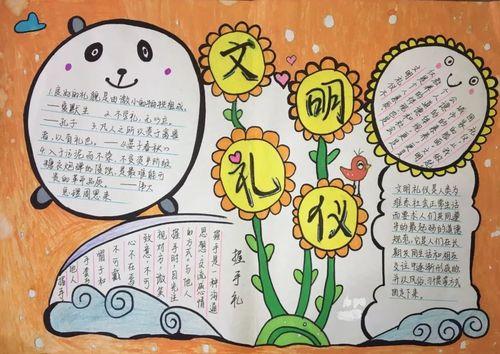 文明
礼仪
1.良好的礼貌是由微小的牺牲组成。
——爱默生 2.不学礼,无以立。
——孔子 3.凡人之所以贵于禽兽
者,以有礼也。——《晏子春秋》
4.入于污泥而不染、不受资产阶级
糖衣炮弹的侵蚀,是最难能可
贵的革命品质。——伟大
总理周恩来
握手礼
握手是一种沟通
思想、交流感情
的方式。与他人
握手时,目光注
视对方,微笑
致意,不可
心不在焉
不可戴
帽子和
手套与
他人
握手
文明礼仪是人类为
维系社会正常生活
而要求人们共同遵
守的最起码的道德
规范,它是人们在长
期共同生活和相互
交往中逐渐形成的
并以风俗、习惯等方式
固定下来。